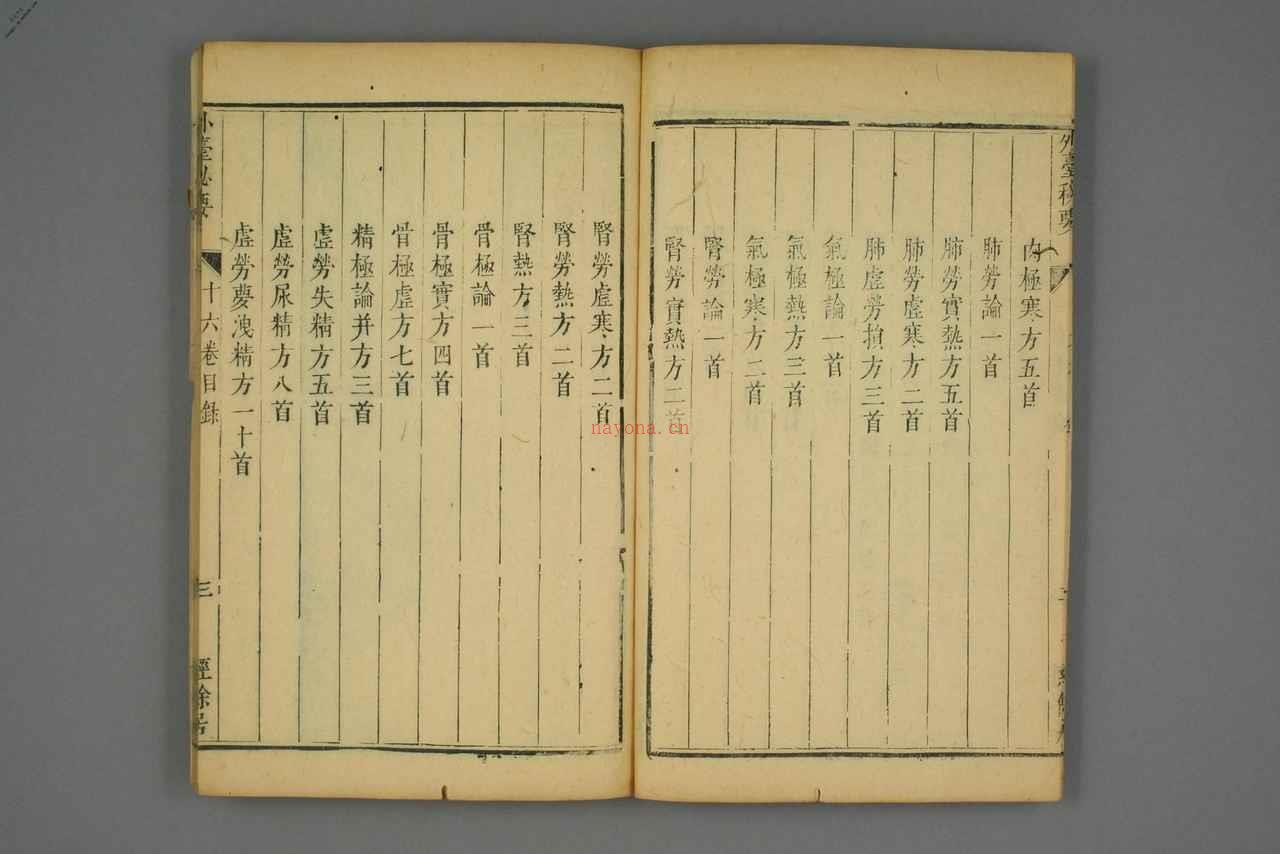 外臺秘要
肉極寒方五首
肺勞論一首
肺勞實熱方五首
肺勞虛寒方二首
肺虛勞損方三首
氣極論一首
氣極熱方三首
氣極寒方二首
腎勞論一首
腎勞實熱方二首
腎勞虛寒方二首
腎勞熱方二首
腎熱方三首
骨極論一首
骨極實方四首
骨極虛方七首
精極論并方三首
虛勞失精方五首
虛勞尿精方八首
虛勞夢洩精方一十首
外臺秘要
十六卷目錄
三
經餘居
nayona.cn